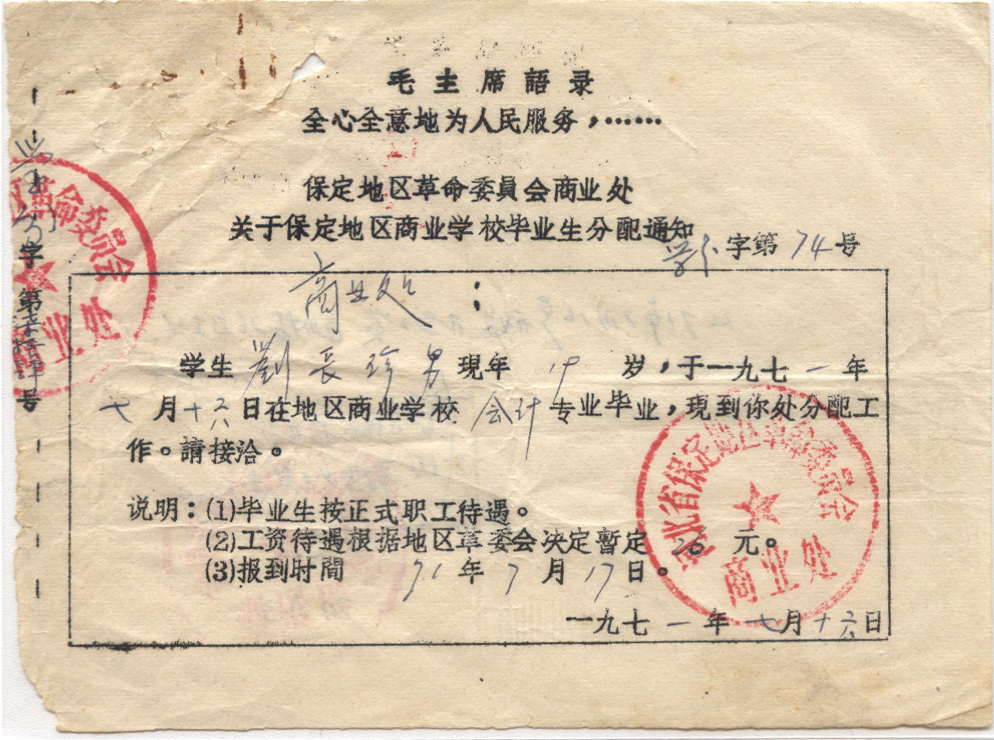 毛主席語录
全心全意地为人民服务，……
保定地区革命委員会商业处
关于保定地区商业学校毕业生分配通知
字第74号
商业处：
学生劉長珍男現年19岁，于一九七一年
七月十六日在地区商业学校会计专业毕业，現到你处分配工
作。請接洽。
说明：(1)毕业生按正式职工待遇。
(2)工资待遇根据地区革委会决定暫定26元。
(3)报到时間71年7月17日。
一九七一年七月十六日
河北省保定地区革命委员会
商业处
革命委员会
商业处
字第
号